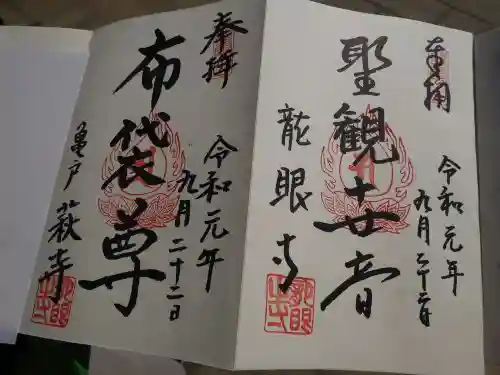 奉拝
聖観世音
龍眼寺
令和元年
九月二十二日
奉拝
布袋尊
亀戸 萩寺
令和元年
九月二十二日